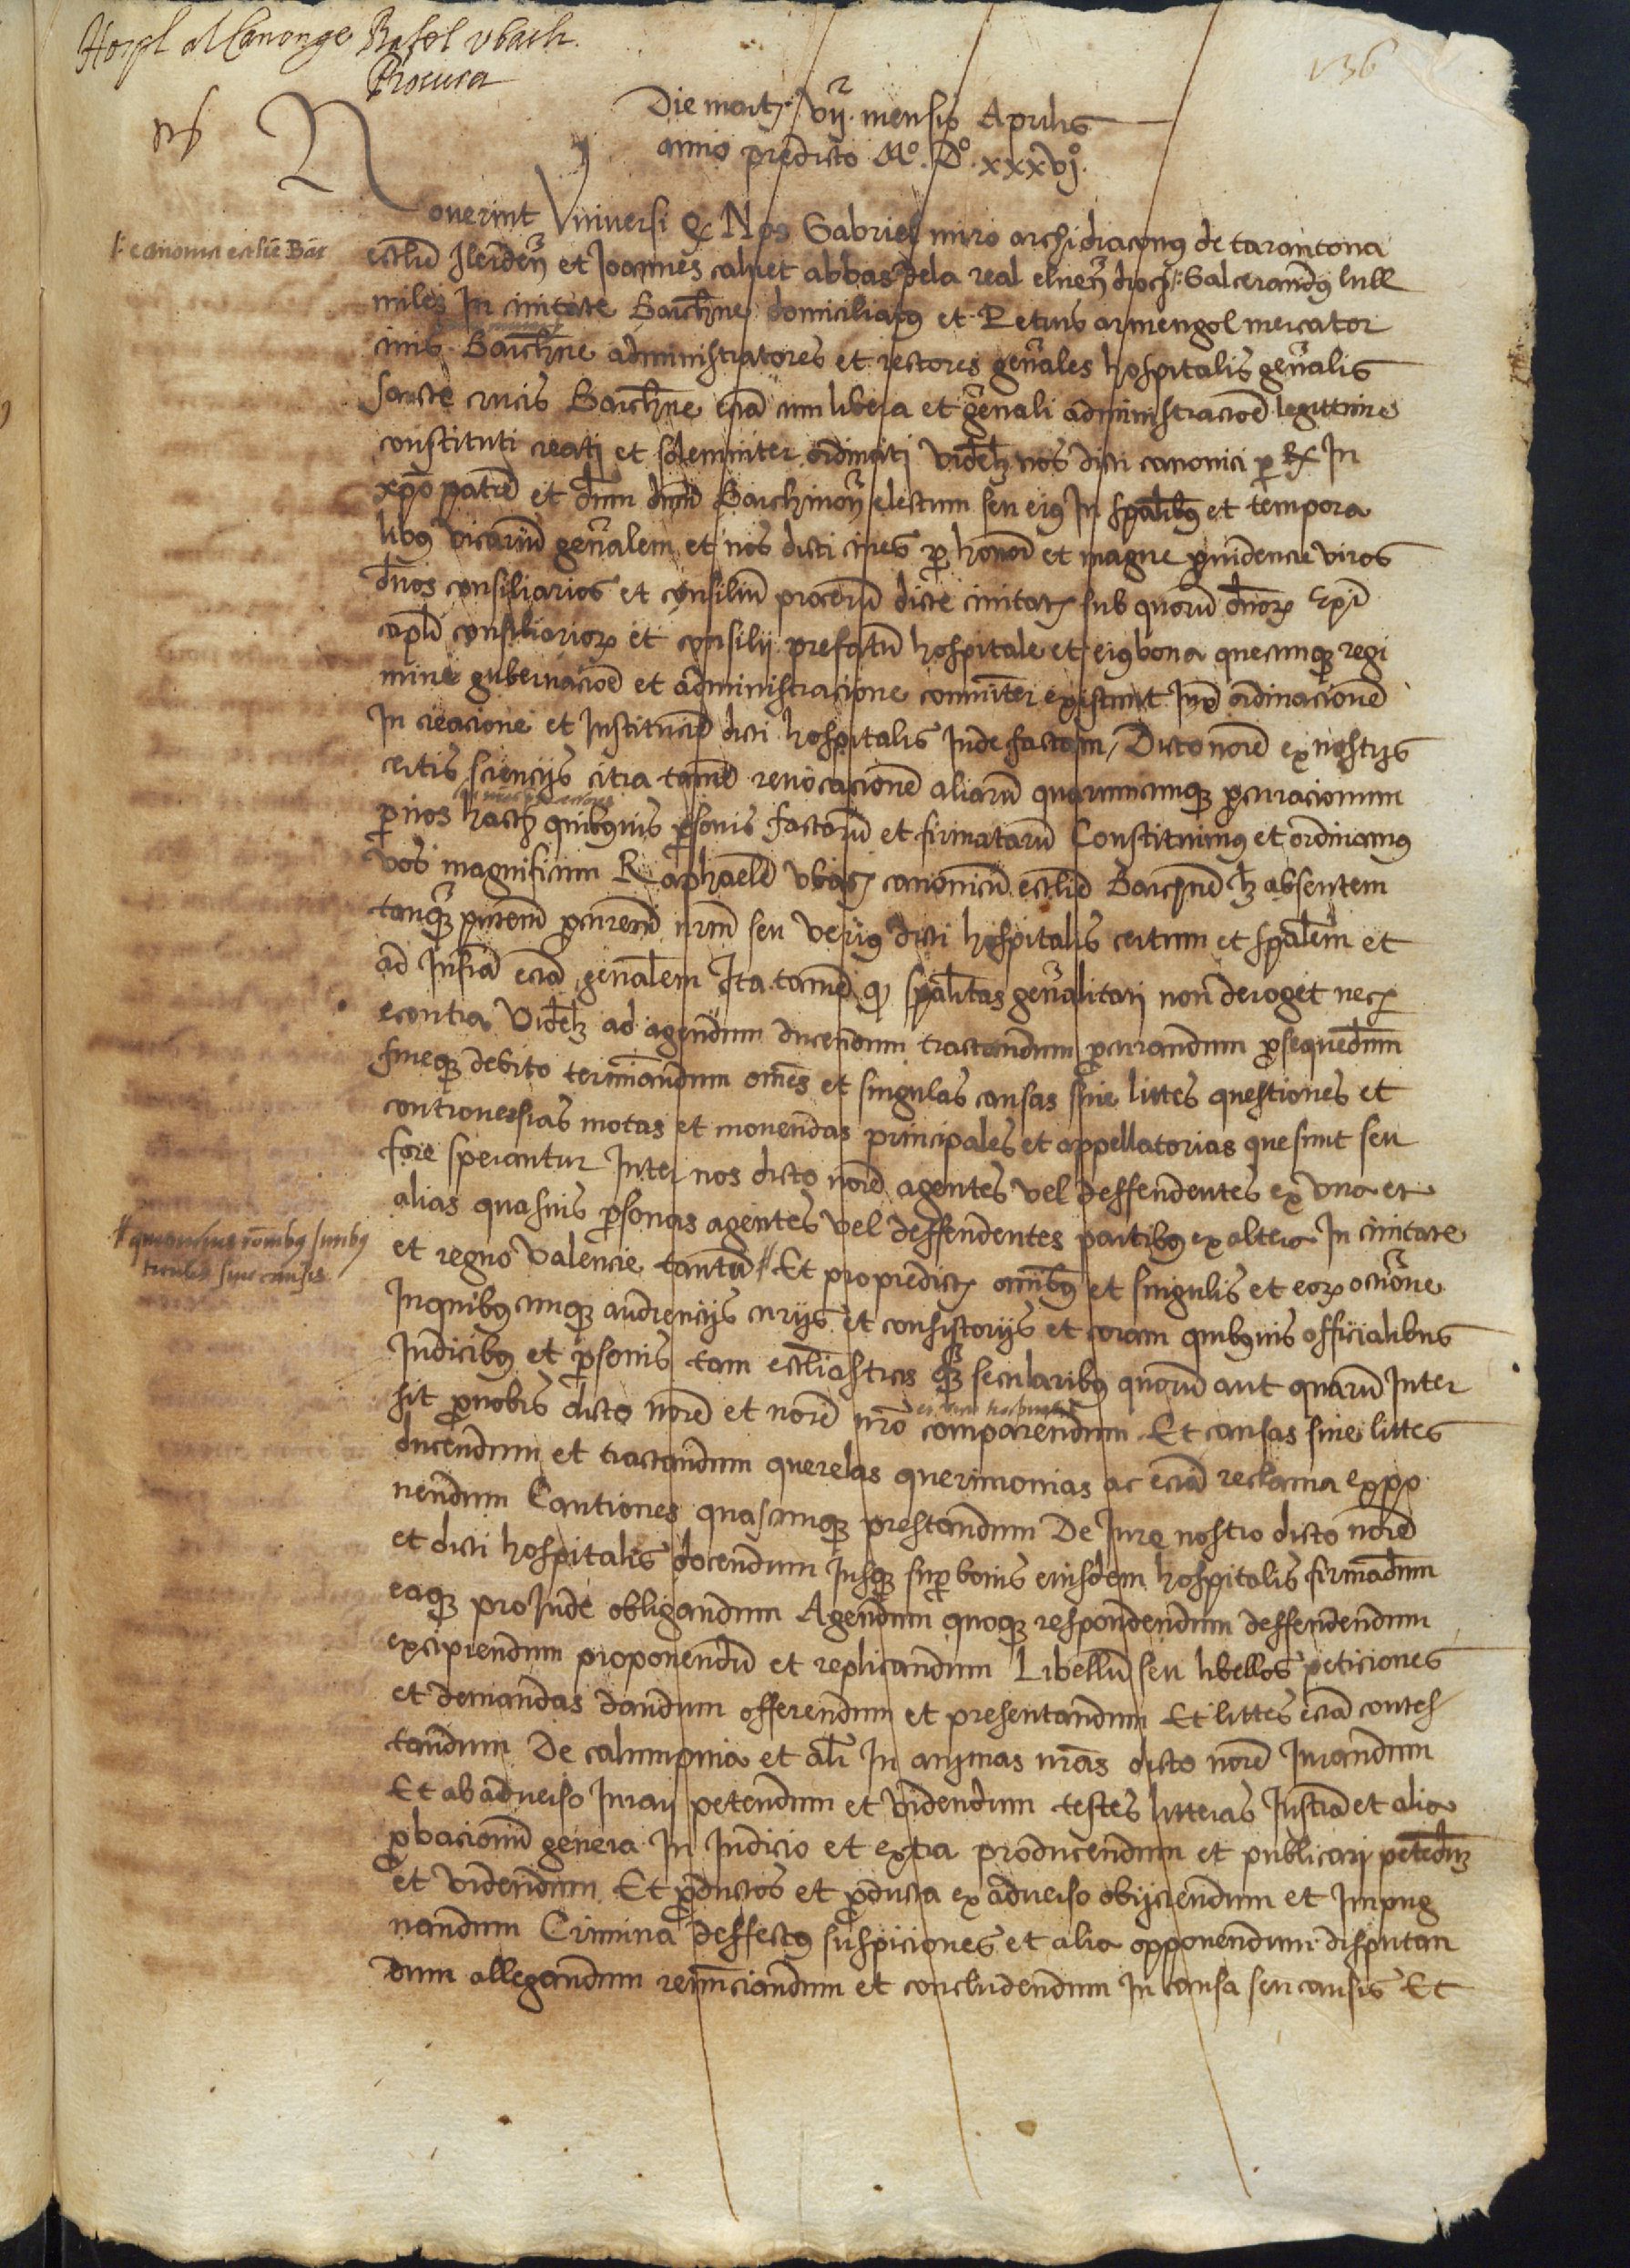 Hospl al Canonge Rafel Vbach
Procura
136
Die mart. vij. mensis Aprilis
anno predicto Mº. Dº. xxxvjº.
Nouerint Vniuersi q Nos Gabriel miro archidiaconus de tarantona
canonici ecclie Bar
ecclie Ilerdeñ et Joannes caluet abbas dela real elneñ dioc. Galcerandus lull
miles In ciuitate Barchne domiciliatus et Petrus armengol mercator
ciuis Barchne administratores et rectores gen̄ales hospitalis gen̄alis
sancte crucis Barchne eciā cum libera et gen̄ali administracioē legittime
constituti creati et solemniter ordinati videlz nos dicti canonici p R. In
xp̄o patrē et dn̄m dn̄m Barchinoñ electum seu eius In spalibus et tempora
libus vicariū gen̄alem et nos dicti ciues p honor et magne prouidencie viros
dn̄os consiliarios et consiliū procerū dicte ciuitat. sub quorū dn̄or.
capli consiliarior. et consilij prefatū hospitale et eius bona quecunq regi
mine gubernacioē et administracione comuniter existunt Iux ordinacionē
In creacione et Institucioē dicti hospitalis Inde factam / Dicto noīe ex nostris
certis sciencijs citra tamē reuocacionē aliarū quarumcunq procuracionum
p nos hacten quibusuis psonis factarū et firmatarū Constituimus et ordinamus
vos magnificum Raphaelē vbach canonicū ecclie Barchne lz absentem
tanq pntem procurem nrm seu verius dicti hospitalis certum et spalem et
ad Infra eciā gen̄alem Ita tamē q spalitas gen̄alitati non deroget nec
econtra videlz ad agendum ducendum tractandum procurandum prosequendum
fineq debito terminandum omēs et singulas causas siue littes questiones et
controuersias motas et mouendas principales et appellatorias que sunt seu
fore sperantur Inter nos dicto noīe agentes vel deffendentes ex vna et
alias quasuis psonas agentes vel deffendentes partibus ex altera In ciuitate
et regno valencie tantū // Et pro predict. omībus et singulis et eor. occōne
Inquibuscunq audiencijs curijs et consistorijs et coram quibusuis officialibus
Iudicibus et psonis tam ecclīasticis q secularibus quorū aut quarū Inter
sit pro nobis dicto noīe et noīe nr̄o comparendum Et causas siue littes
ducendum et tractandum querelas querimonias ac eciā reclama expo
nendum Cautiones quascunq prestandum De Iure nostro dicto noīe
et dicti hospitalis docendum Iusq sup bonis eiusdem hospitalis firmadum
eaq pro Inde obligandum Agendum quoq respondendum deffendendum
excipiendum proponendū et replicandum Libellū seu libellos peticiones
et demandas dandum offerendum et presentandum Et littes eciā contes
tandum De calumpnia et al. In animas nrās dicto noīe Iurandum
Et ab aduerso Iurari petendum et videndum testes litteras Instra et alia
probacionū genera In Iudicio et extra producendum et publicari petedum
et videndum Et productos et producta ex aduerso obijciendum et Impug
nandum Crimina deffectus suspiciones et alia opponendum disputan
dum allegandum renunciandum et concludendum In causa seu causis Et